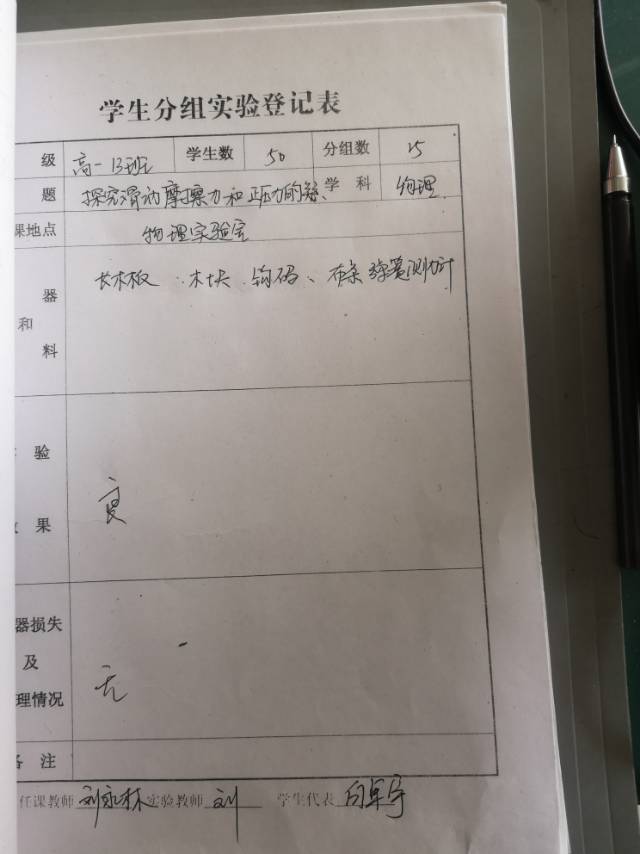 学生分组实验登记表
级 高一13班 学生数 50 分组数 25
题 探究滑动摩擦力和正压力的关系 学科 物理
课地点 物理实验室
器 长木板、木块、钩码、布条 弹簧测力计
和
料
验
良
果
器损失
及
无
理情况
备注
任课教师 刘永林 实验教师 刘 学生代表 向卓宇